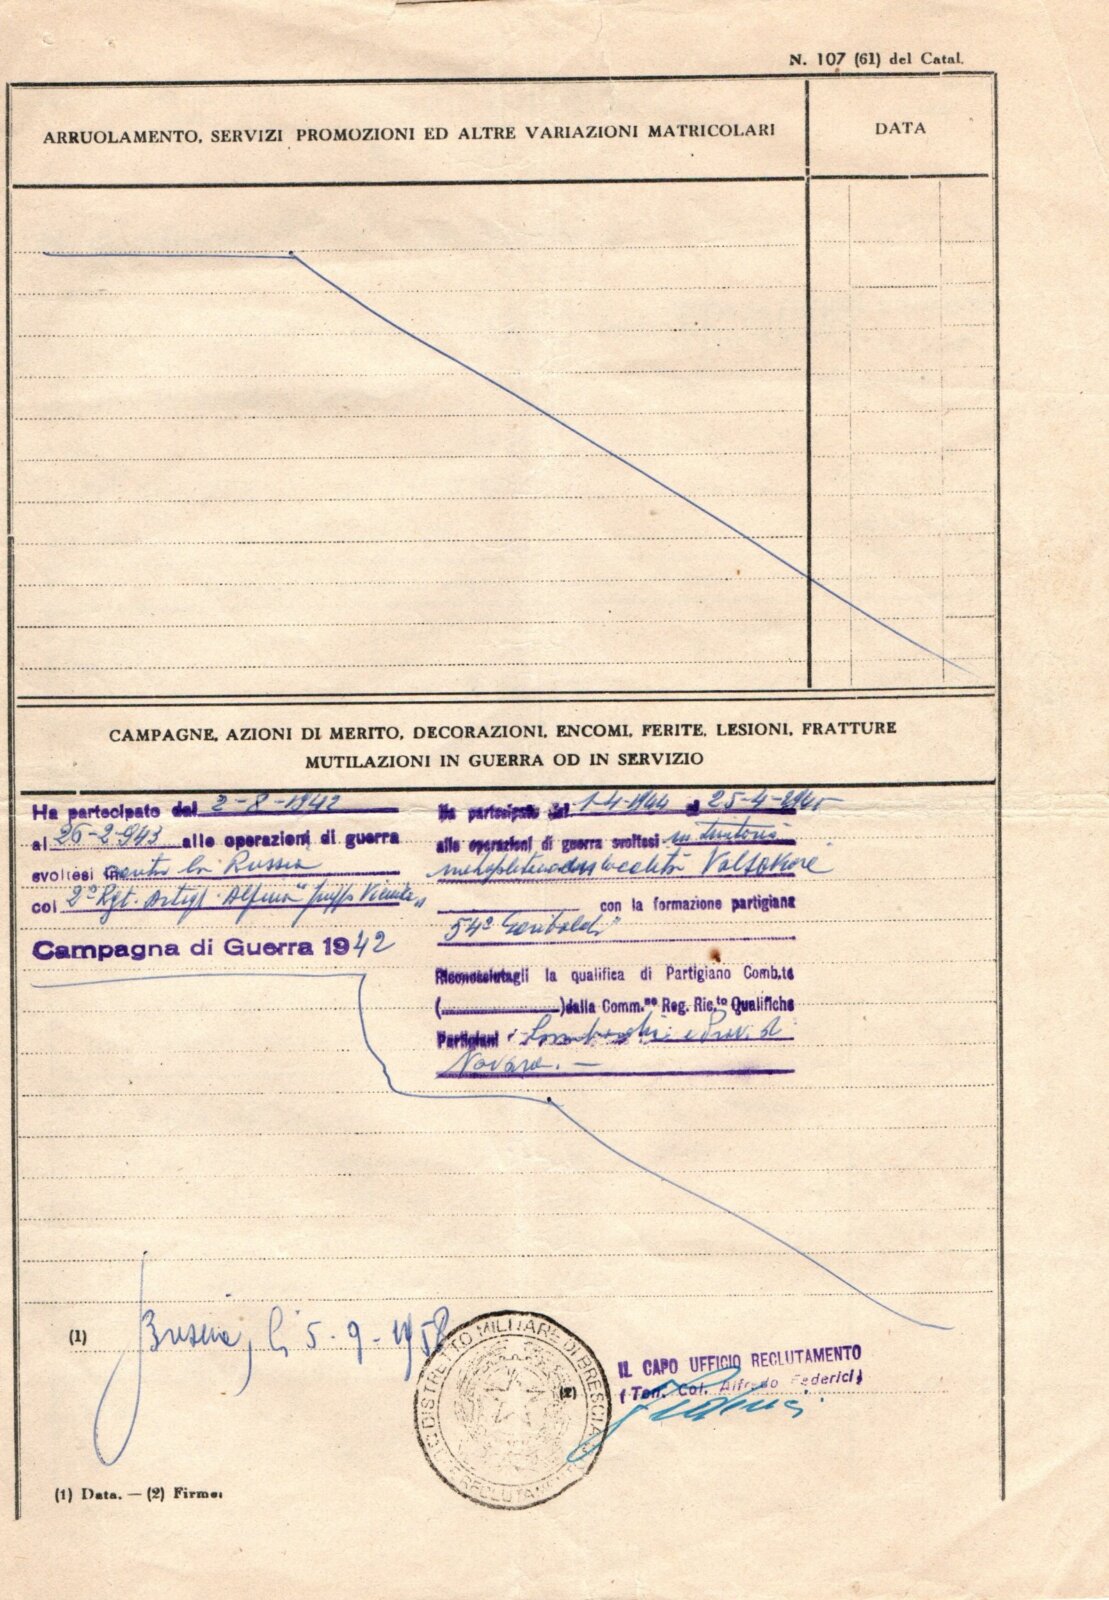 N. 107 (61) del Catal.
ARRUOLAMENTO, SERVIZI PROMOZIONI ED ALTRE VARIAZIONI MATRICOLARI
DATA
CAMPAGNE, AZIONI DI MERITO, DECORAZIONI, ENCOMI, FERITE, LESIONI, FRATTURE
MUTILAZIONI IN GUERRA OD IN SERVIZIO
Ha partecipato dal 2-8-1942
al 26-2-943 alle operazioni di guerra
svoltesi in contro la Russia
col 2° Rgt. Artigl. Alpina
Campagna di Guerra 1942
Ha partecipato dal 1-4-1944 al 25-4-1945
alle operazioni di guerra svoltesi in territorio
metropolitano in località Valsaviore
con la formazione partigiana
54ª Garibaldi"
Riconosciutagli la qualifica di Partigiano Comb.te
(..........)dalla Comm.ne Reg. Ric.to Qualifiche
Partigiani Lombardia e Prov. di
Novara. —
(1) Brescia, li 5-9-1958
DISTRETTO MILITARE DI BRESCIA
RECLUTAMENTO
(2)
IL CAPO UFFICIO RECLUTAMENTO
(Ten. Col. Alfredo Federici)
(1) Data. — (2) Firme.